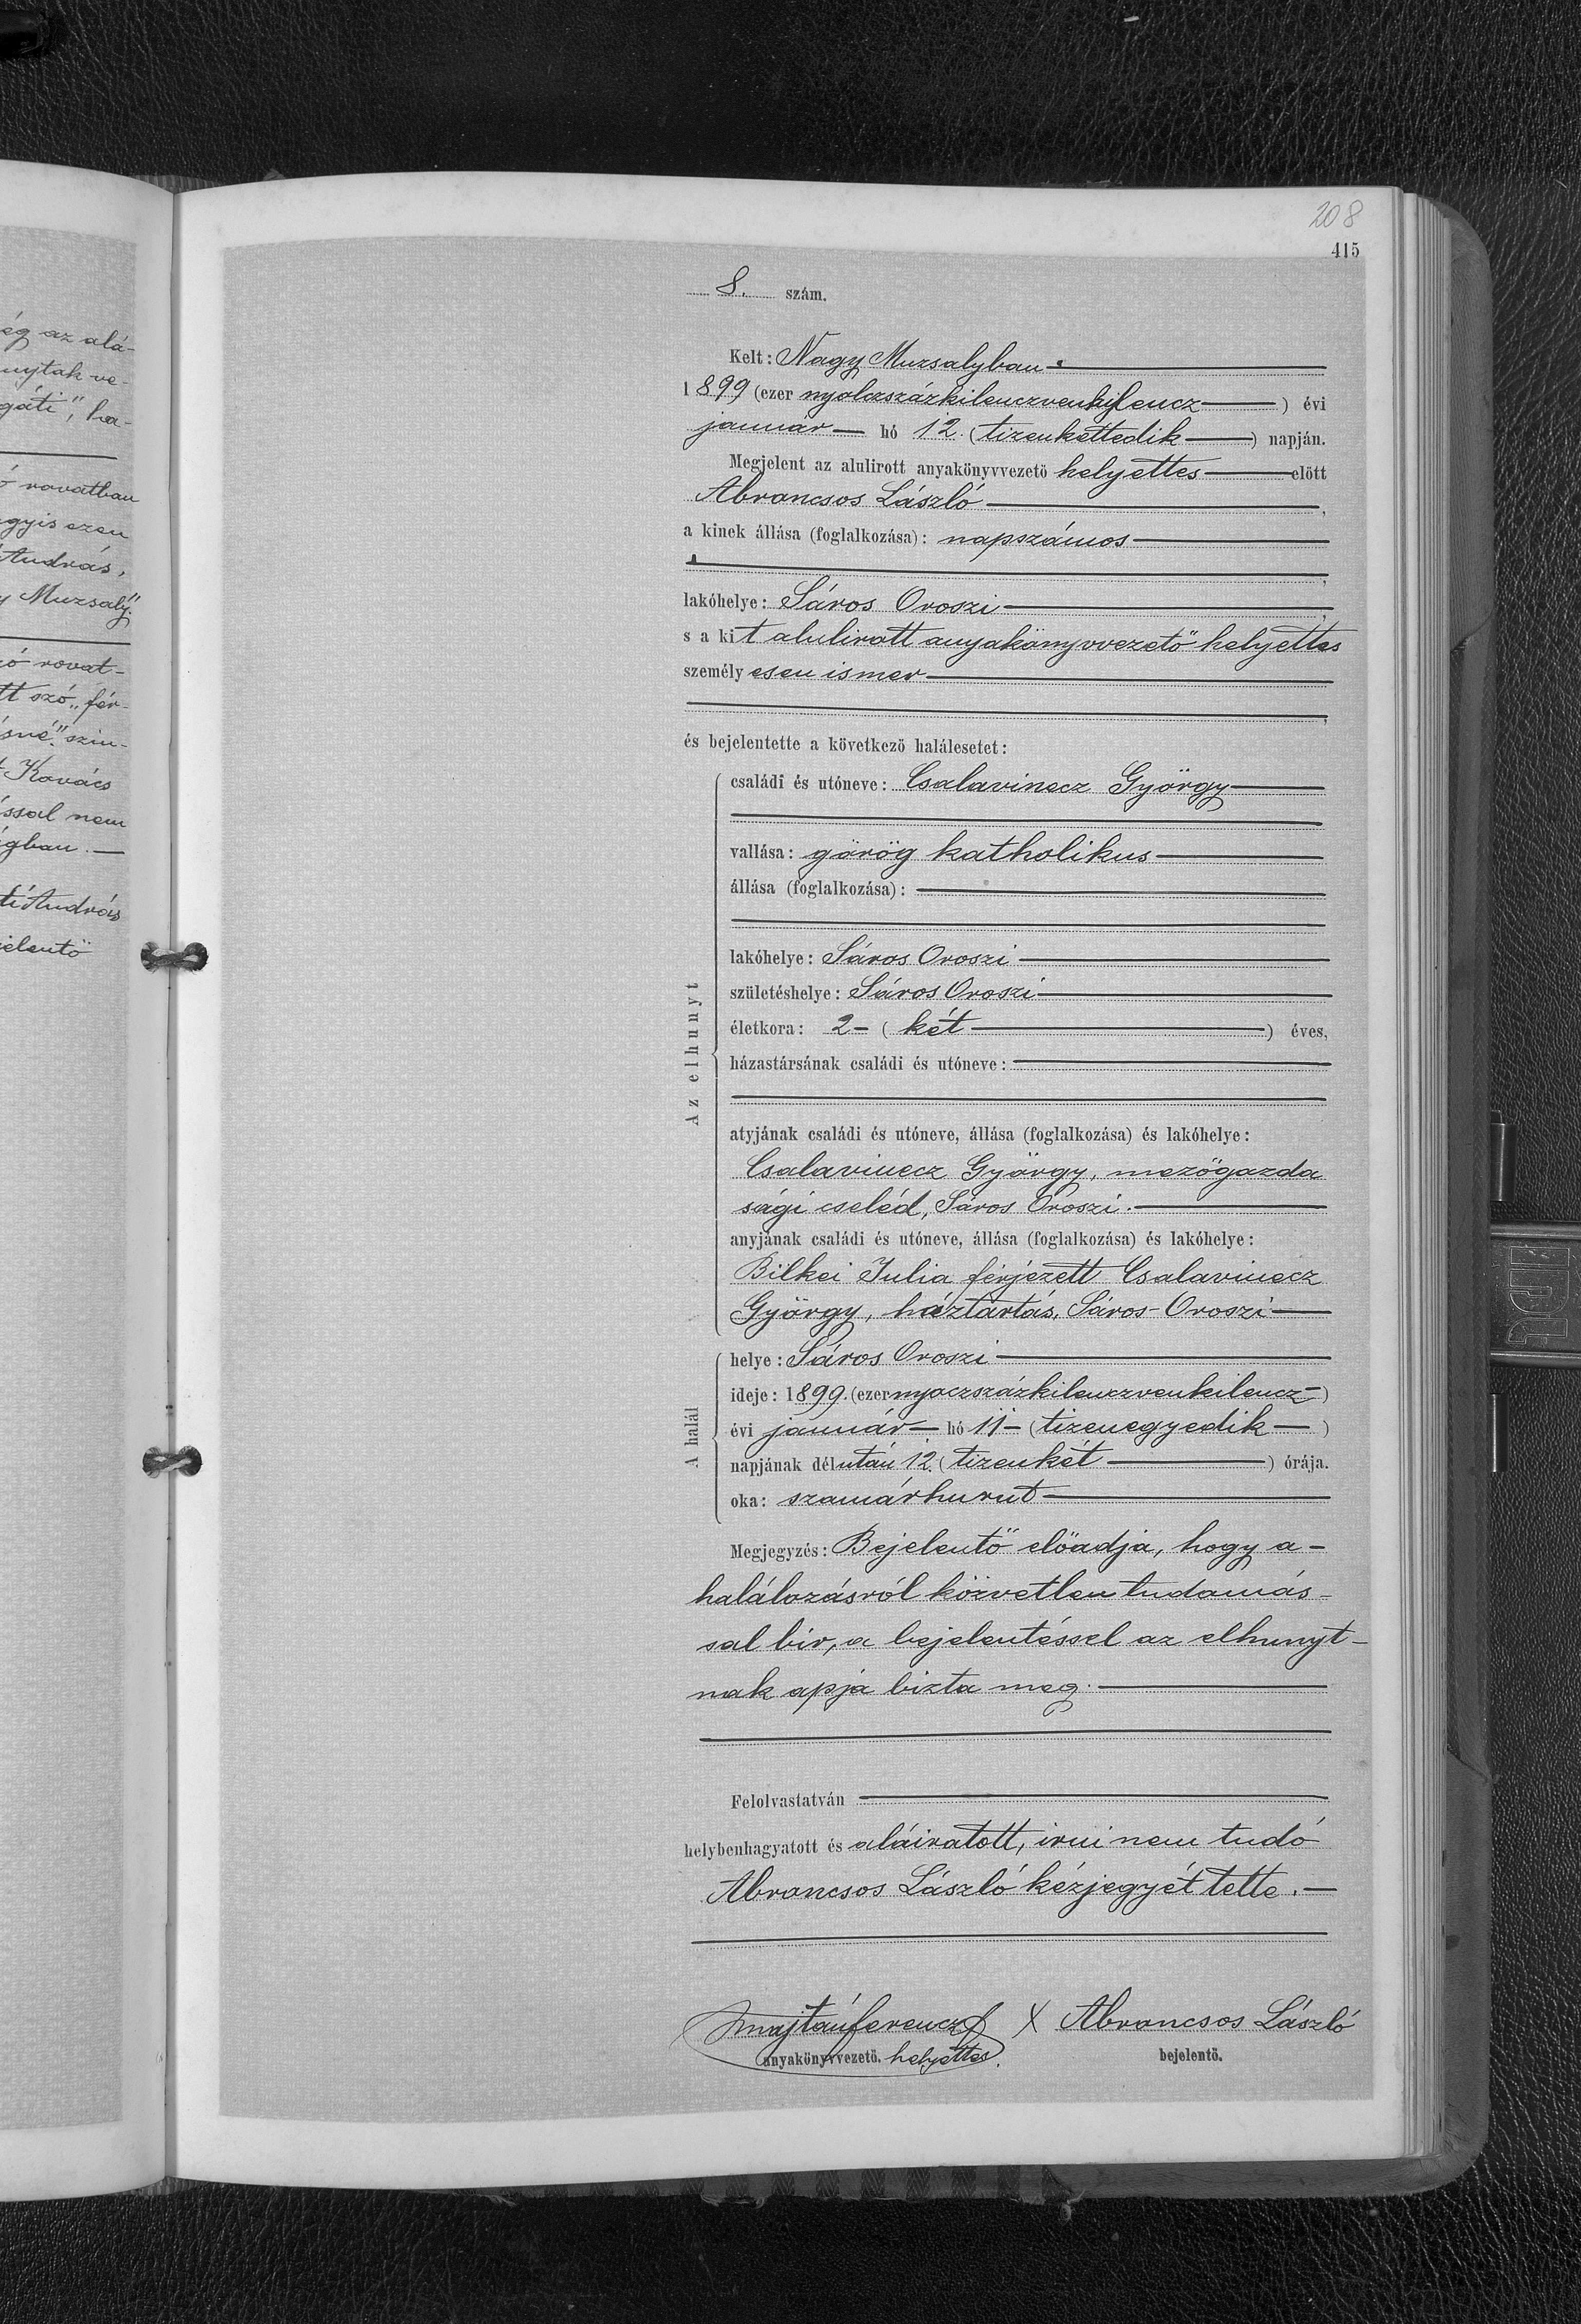 ég az alá-
nyjtak ve-
gáti", ha-
ó rovatban
gyis ezen
András,
y Muzsaly."
ó rovat-
tt szó „fér-
ásné" szin-
t Kovács
ással nem
gban. —
ti András
jelentö
208
415
8. szám.
Kelt: Nagy Muzsalyban
1899 (ezer nyolczszázkilenczvenkilencz) évi
január hó 12. (tizenkettedik) napján.
Megjelent az alulirott anyakönyvvezetö helyettes elött
Abrancsos László,
a kinek állása (foglalkozása): napszámos
lakóhelye: Sáros Oroszi,
s a kit alulirott anyakönyvvezető helyettes
személyesen ismer
és bejelentette a következö halálesetet:
Az elhunyt
családi és utóneve: Csalavinecz György
vallása: görög katholikus
állása (foglalkozása):
lakóhelye: Sáros Oroszi
születéshelye: Sáros Oroszi
életkora: 2- (két) éves,
házastársának családi és utóneve:
atyjának családi és utóneve, állása (foglalkozása) és lakóhelye:
Csalavinecz György, mezőgazda
sági cseléd, Sáros Oroszi.
anyjának családi és utóneve, állása (foglalkozása) és lakóhelye:
Bilkei Julia férjezett Csalavinecz
György, háztartás, Sáros-Oroszi
A halál
helye: Sáros Oroszi
ideje: 1899. (ezernyoczszázkilenczvenkilencz-)
évi január hó 11- (tizenegyedik)
napjának délután 12. (tizenkét) órája.
oka: szamárhurut
Megjegyzés: Bejelentő előadja, hogy a-
halálozásról közvetlen tudomás-
sal bir, a bejelentéssel az elhunyt-
nak apja bizta meg.
Felolvastatván
helybenhagyatott és aláiratott, irni nem tudó
Abrancsos László kézjegyét tette.
Majtánferencz X Abrancsos László
anyakönyvvezetö. helyettes. bejelentö.